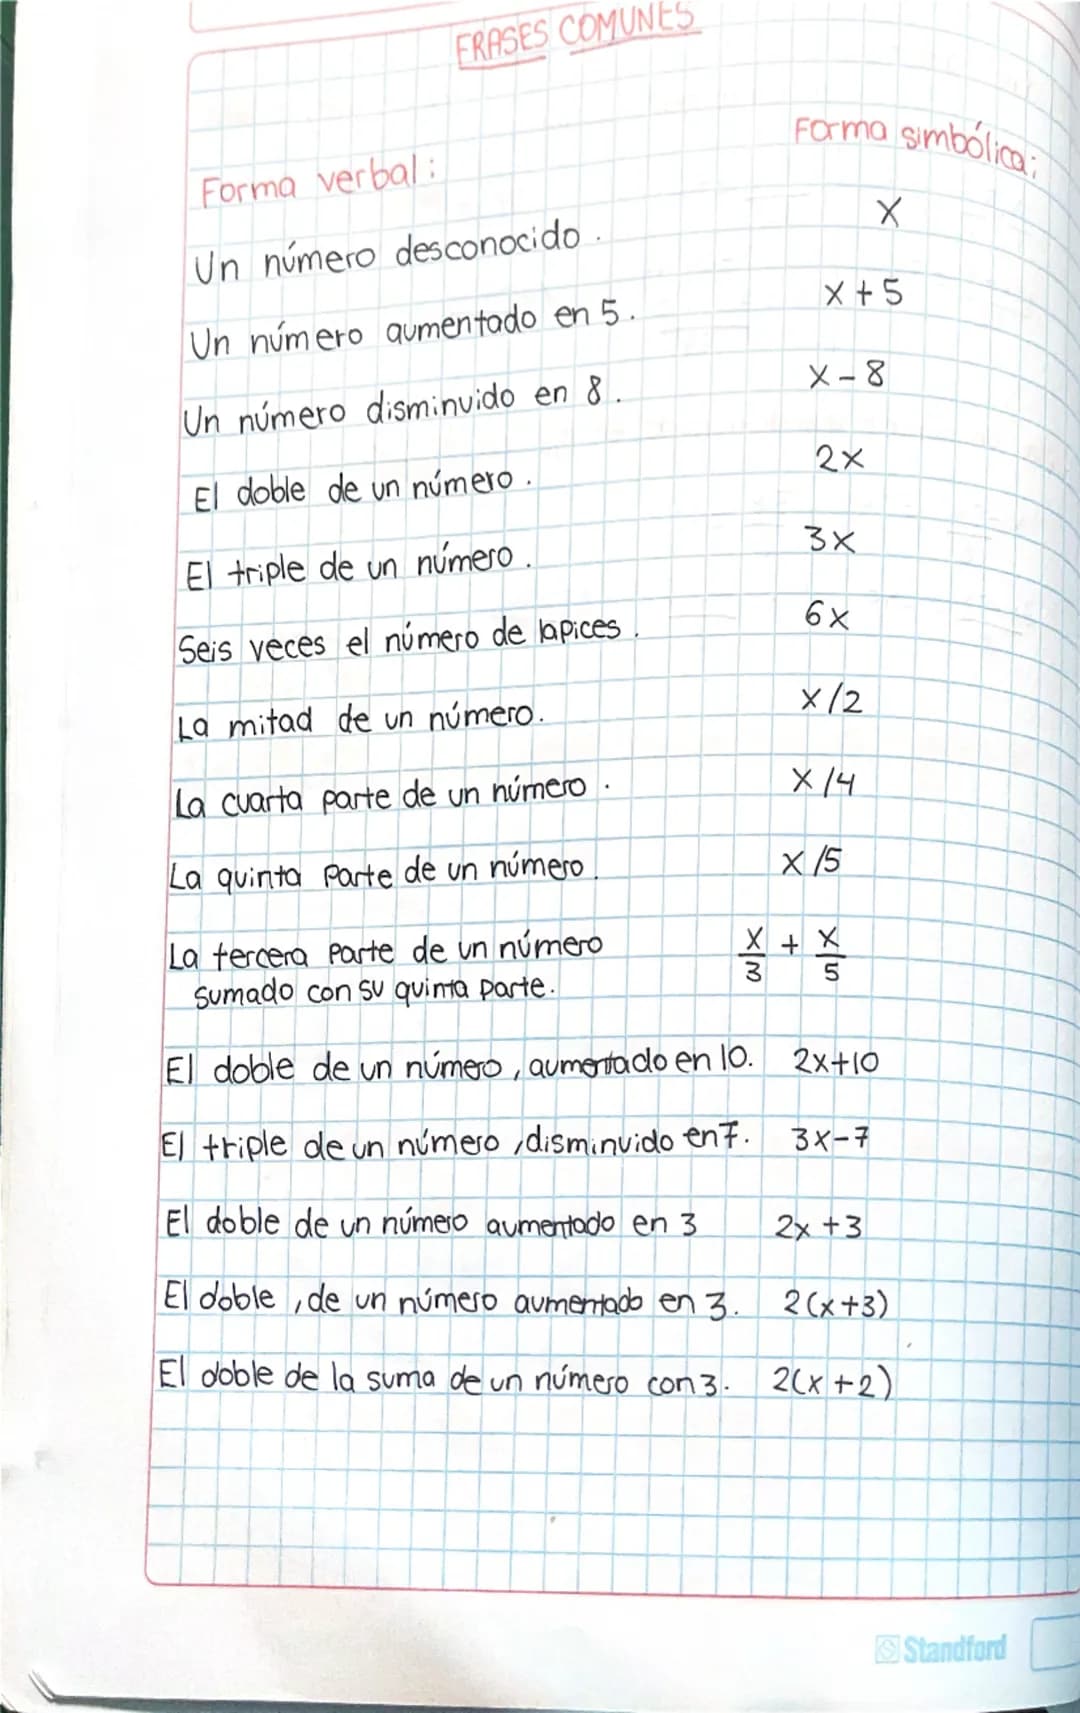 FRASES COMUNES
Forma verbal: Forma simbólica;
Un número desconocido. X
Un número aumentado en 5. X + 5
Un número disminuido en 8. X - 8
El doble de un número. 2X
El triple de un número. 3X
Seis veces el número de lapices. 6X
La mitad de un número. X/2
La cuarta parte de un número. X/4
La quinta parte de un número. X/5
La tercera parte de un número X/3 + X/5
sumado con su quinta parte.
El doble de un número, aumentado en 10. 2x+10
El triple de un número, disminuido en 7. 3x-7
El doble de un número aumentado en 3 2x + 3
El doble, de un número aumentado en 3. 2(x+3)
El doble de la suma de un número con 3. 2(x+2)
Standford